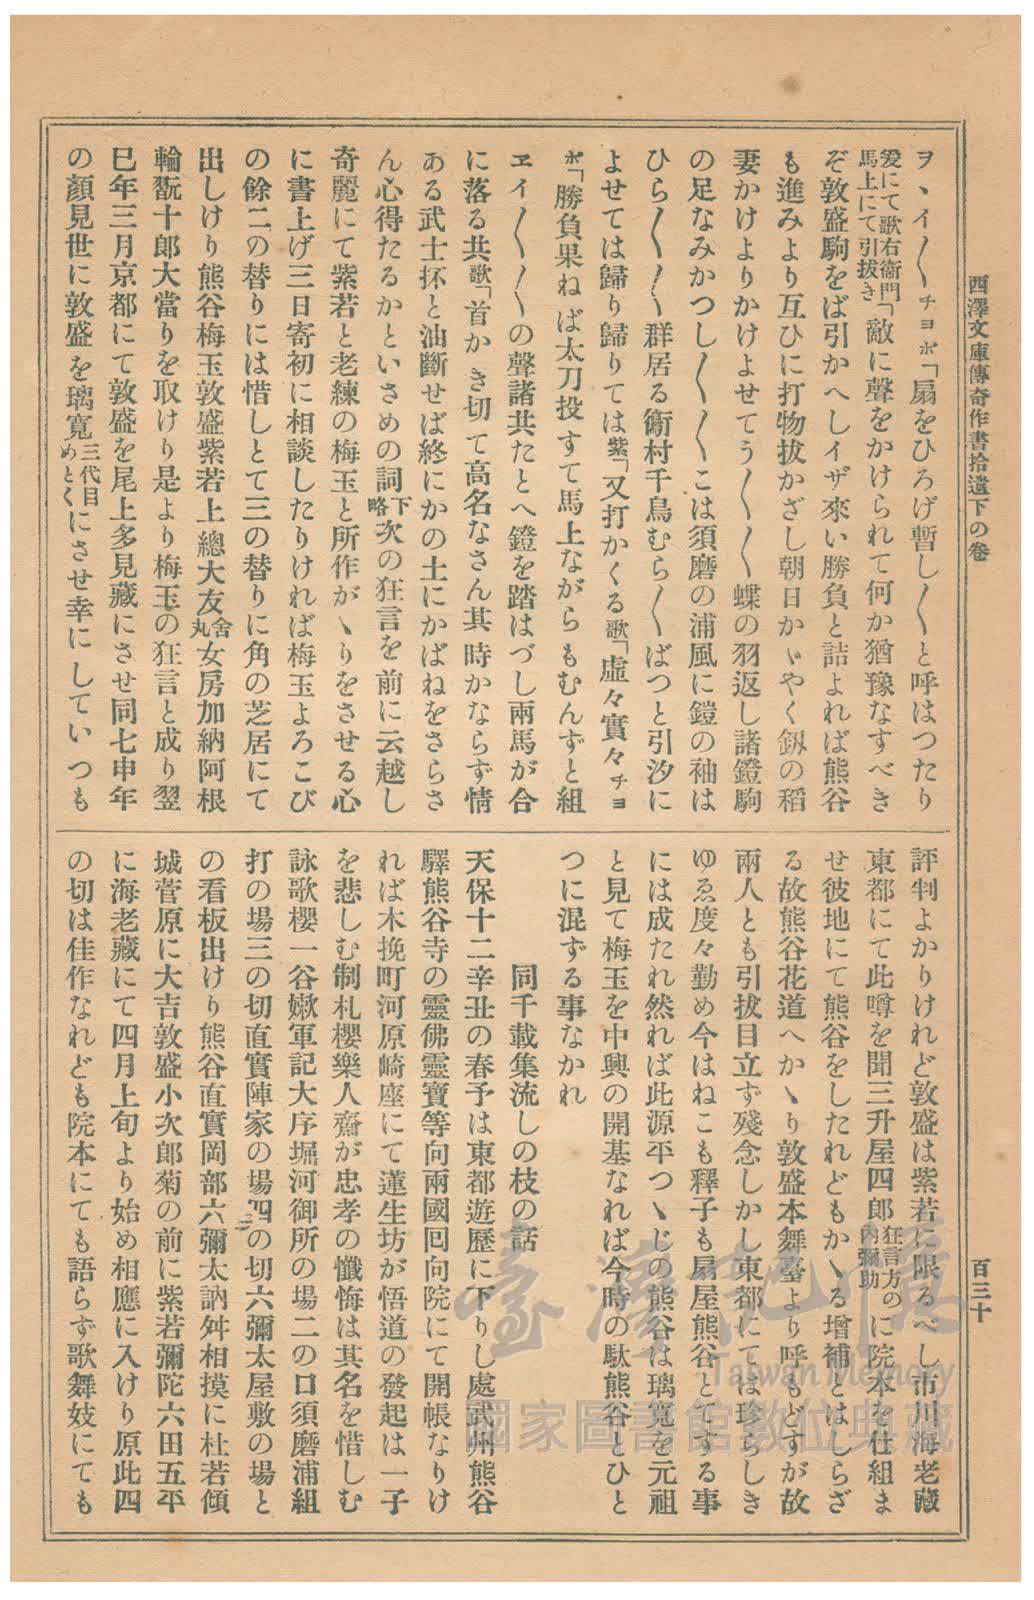 西澤文庫傳奇作書拾遺下の卷
百三十
ヲヽイ〳〵チヨボ「扇をひろげ暫し〳〵と呼はつたり
爰にて歌右衞門馬上にて引拔き「敵に聲をかけられて何か猶豫なすべき
ぞ敦盛駒をば引かへしイザ來い勝負と詰よれば熊谷
も進みより互ひに打物拔かざし朝日かゞやく釼の稻
妻かけよりかけよせてう〳〵〳〵蝶の羽返し諸鐙駒
の足なみかつし〳〵〳〵こは須磨の浦風に鎧の袖は
ひら〳〵〳〵群居る衞村千鳥むら〳〵ばつと引汐に
よせては歸り歸りては紫「又打かくる歌「虛々實々チヨ
ボ「勝負果ねば太刀投すて馬上ながらもむんずと組
ヱイ〳〵〳〵の聲諸共たとへ鐙を踏はづし兩馬が合
に落る共歌「首かき切て高名なさん其時かならず情
ある武士抔と油斷せば終にかの土にかばねをさらさ
ん心得たるかといさめの詞下略次の狂言を前に云越し
奇麗にて紫若と老練の梅玉と所作がゝりをさせる心
に書上げ三日寄初に相談したりければ梅玉よろこび
の餘二の替りには惜しとて三の替りに角の芝居にて
出しけり熊谷梅玉敦盛紫若上總大友舍丸女房加納阿根
輪翫十郎大當りを取けり是より梅玉の狂言と成り翌
巳年三月京都にて敦盛を尾上多見藏にさせ同七申年
の顏見世に敦盛を璃寬三代目めとくにさせ幸にしていつも
評判よかりけれど敦盛は紫若に限るべし市川海老藏
東都にて此噂を聞三升屋四郎狂言方の內彌助に院本を仕組ま
せ彼地にて熊谷をしたれどもかゝる增補とはしらざ
る故熊谷花道へかゝり敦盛本舞臺より呼もどすが故
兩人とも引拔目立ず殘念しかし東都にては珍らしき
ゆゑ度々勤め今はねこも釋子も扇屋熊谷とてする事
には成たれ然れば此源平つゝじの熊谷は璃寬を元祖
と見て梅玉を中興の開基なれば今時の駄熊谷とひと
つに混ずる事なかれ
同千載集流しの枝の話
天保十二辛丑の春予は東都遊歷に下りし處武州熊谷
驛熊谷寺の靈佛靈寶等向兩國囘向院にて開帳なりけ
れば木挽町河原崎座にて蓮生坊が悟道の發起は一子
を悲しむ制札櫻樂人齋が忠孝の懺悔は其名を惜しむ
詠歌櫻一谷嫩軍記大序堀河御所の場二の口須磨浦組
打の場三の切直實陣家の場四の切六彌太屋敷の場と
の看板出けり熊谷直實岡部六彌太訥舛相摸に杜若傾
城菅原に大吉敦盛小次郎菊の前に紫若彌陀六田五平
に海老藏にて四月上旬より始め相應に入けり原此四
の切は佳作なれども院本にても語らず歌舞妓にても
臺灣記憶
Taiwan Memory
國家圖書館數位典藏